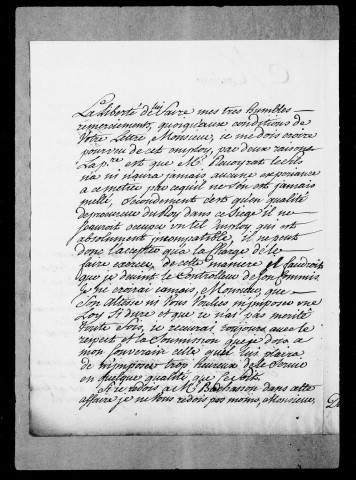 La liberté de luy faire mes tres humbles
remerciements, quoiqu'aux conditions de
Votre Lettre, Monsieur, je me dois croire
pourvu de cet employ, par deux raisons
La p.re est que M.r le fils
n'a ni n'aura jamais aucune experiance
a ce metier parcequ'il ne s'en est jamais
mellé, secondement c'est qu'en qualité
de procureur du Roy dans ce Siege il ne
sauroit occuper un tel employ qui est
absolument incompatible, il ne peut
donc l'accepter qu'a la charge de le
faire exercer, de cette maniere il faudroit
que je devinse le Controlleur de son Commis,
Je ne croirai jamais, Monsieur, que
Son Altesse ni Vous Vouliés m'imposer une
Loy si dure et que je n'ai pas merité
toute fois, je recevrai toujours avec le
respect et la soumission que je dois a
mon souverain celle qu'il lui plaira
de m'imposer trop heureux de le servir
en quelque qualité que ce soit.
Si je dois a M.r dans cette
affaire je ne Vous redois pas moins, Monsieur,